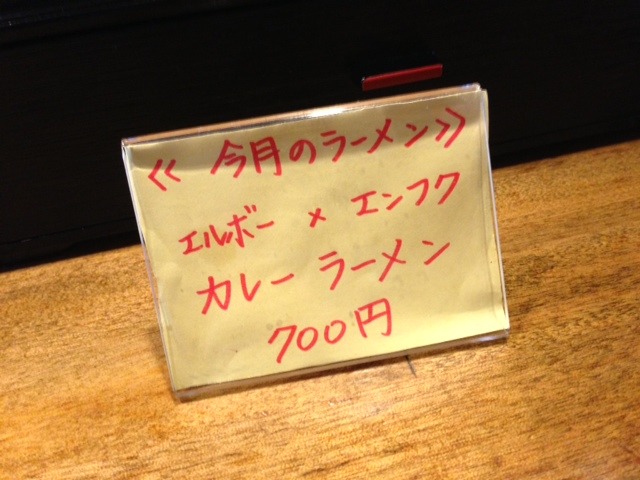 ≪ 今月のラーメン ≫
エルボー × エンフク
カレー ラーメン
700円